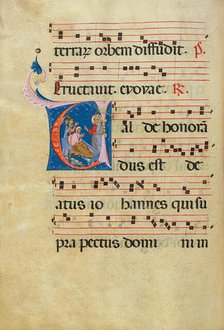 terrarum orbem diffudit. p̃.
Eructauit. evovae. R̃e.
Val de honora
dus est de
atus io hannes qui su
pra pectus domi ni in